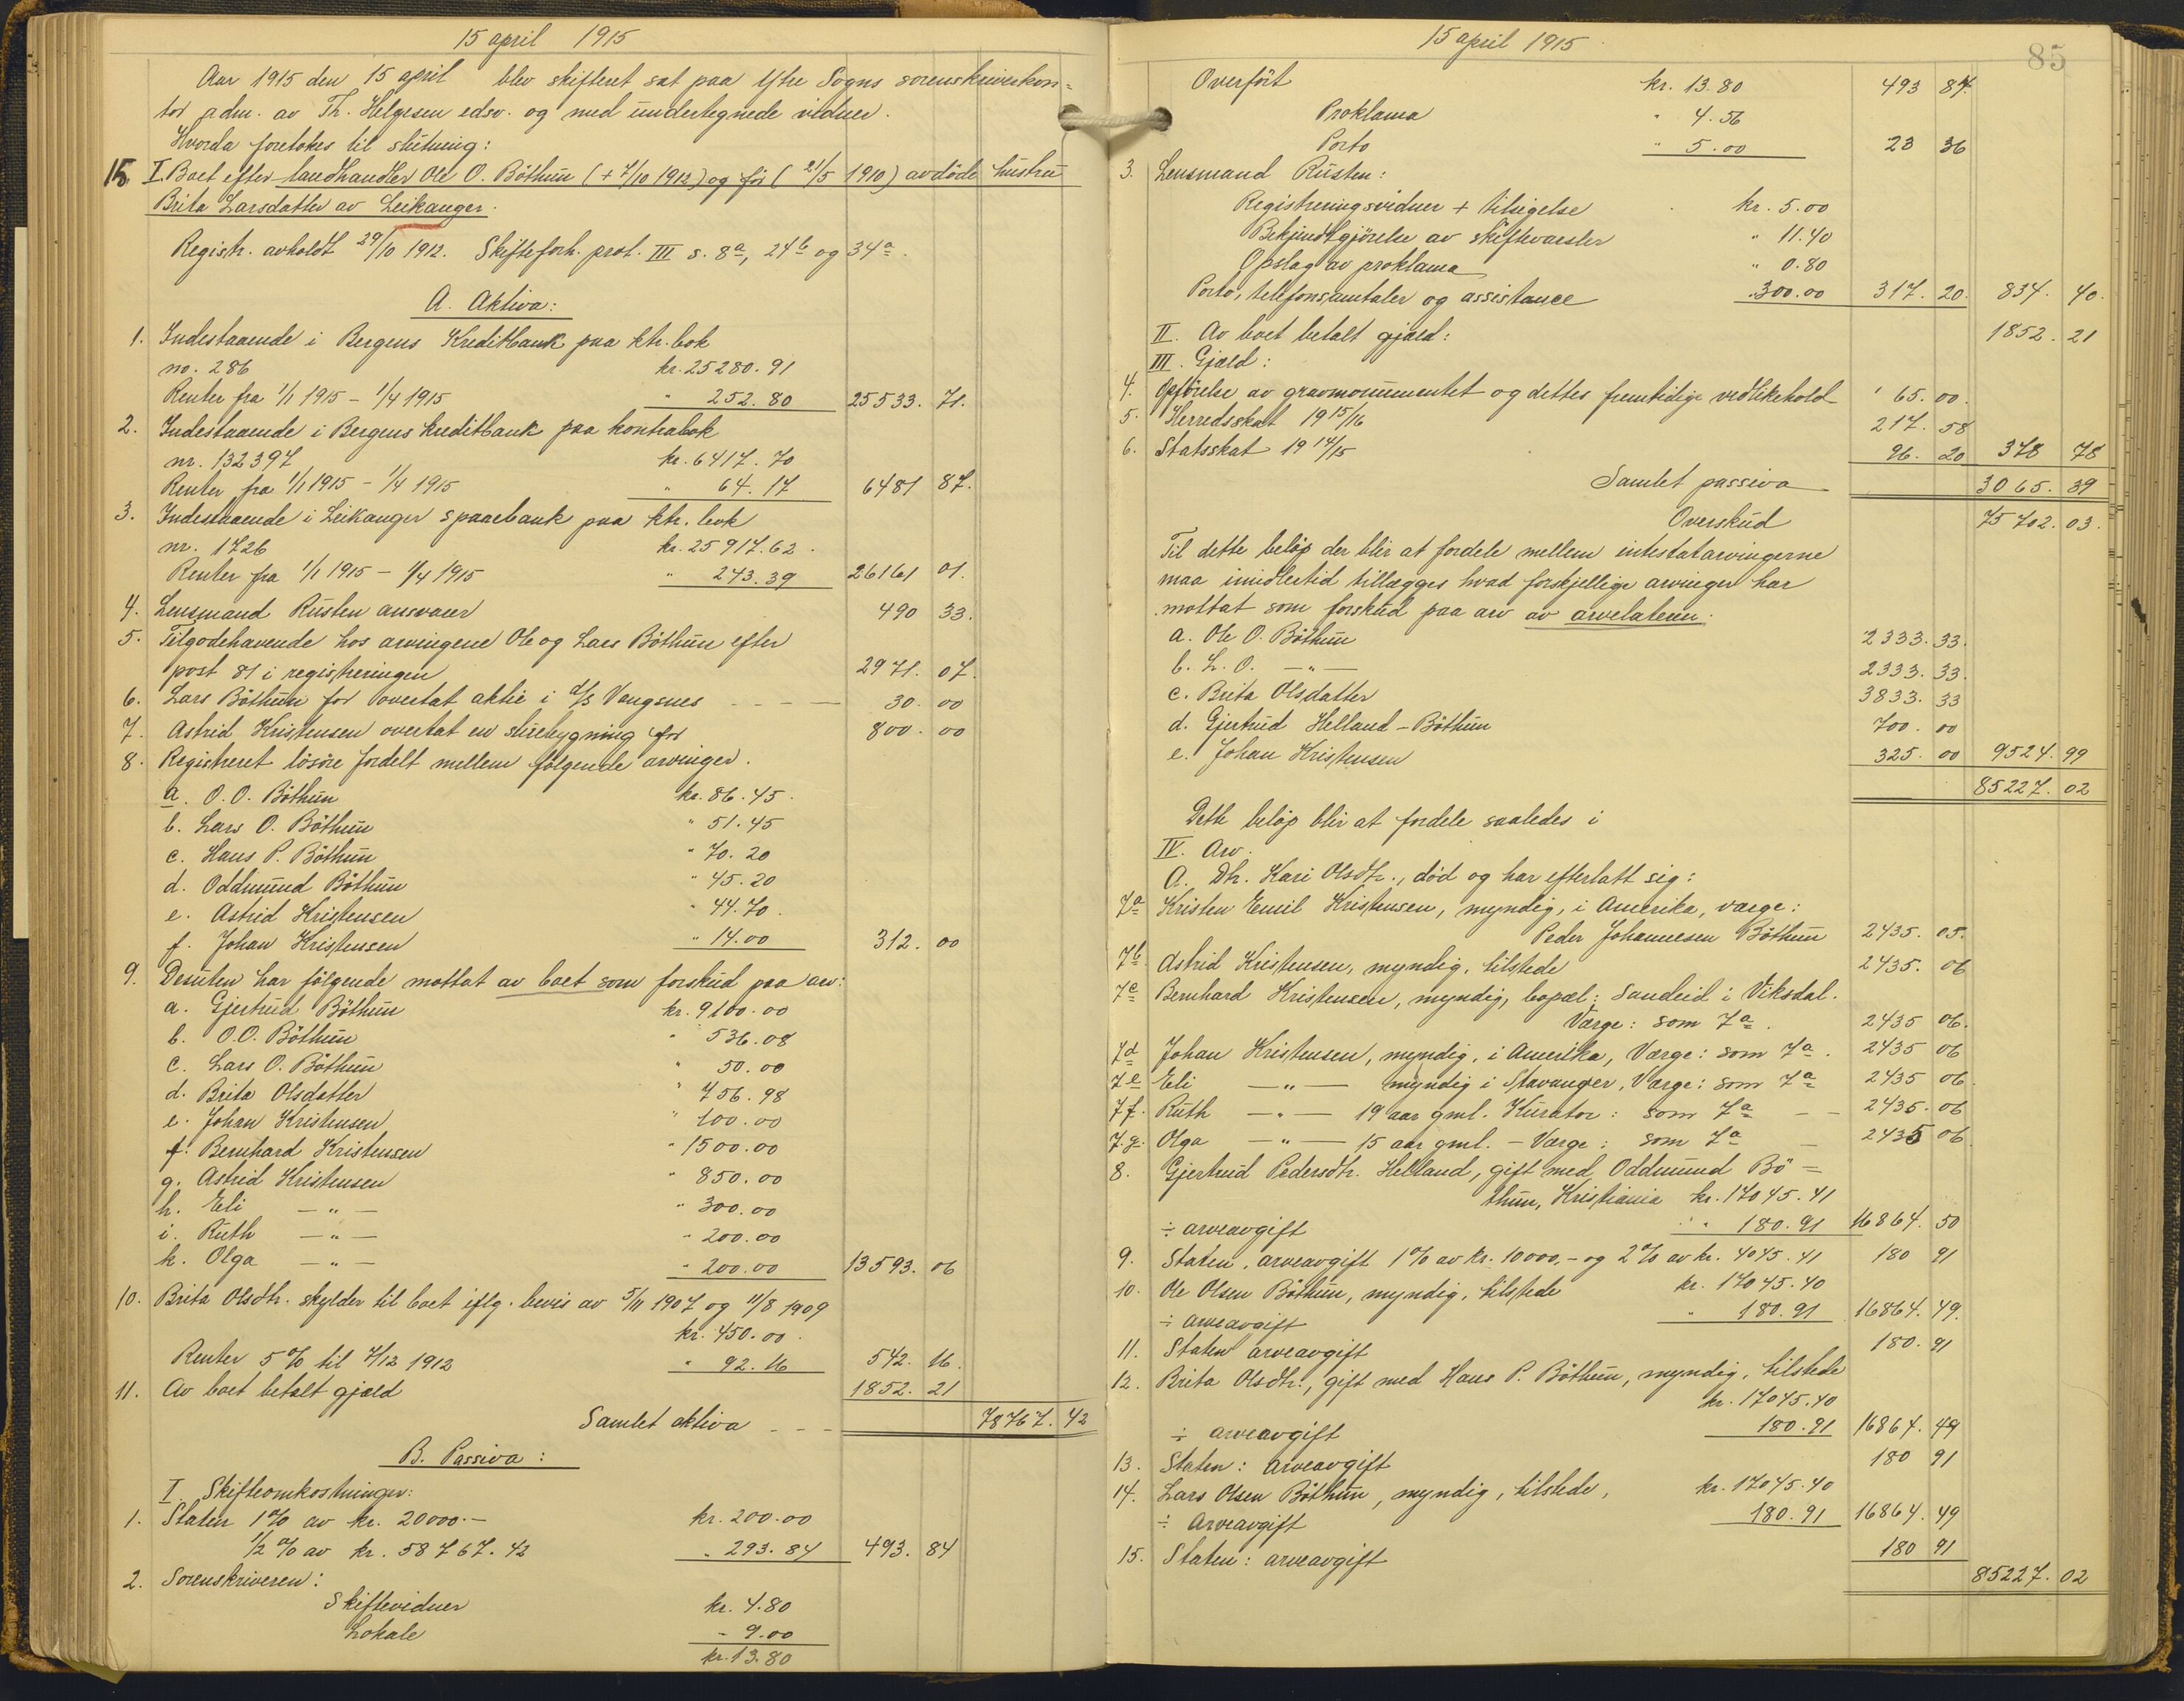 15 april 1915
Aar 1915 den 15 april blev skifteret sat paa Ytre Sogns sorenskriverkon=
tor adm. av Th. Helgesen edsv. og med undertegnede vidner.
Hvorda foretokes til slutning:
15. I. Boet efter landhandler Ole O. Böthun (+ 7/10 1912) og før (21/5 1910) avdöde hustru
Brita Larsdatter av Leikanger.
Registr. avholdt 29/10 1912. Skifteforh. prot. III s. 8a, 24b og 34a.
A. Aktiva:
1. Indestaaende i Bergens Kreditbank paa ktr. bok
no. 286 kr. 25280.91
Renter fra 1/1 1915 - 1/4 1915 " 252.80 25533.71.
2. Indestaaende i Bergens Kreditbank paa kontrabok
nr. 132397 kr. 6417.70
Renter fra 1/1 1915 - 1/4 1915 " 64.17 6481 87.
3. Indestaaende i Leikanger sparebank paa ktr. bok
nr. 1726 kr. 25917.62.
Renter fra 1/1 1915 - 1/4 1915 " 243.39 26161 01.
4. Lensmand Rusten ansvarer 490 33.
5. Tilgodehavende hos arvingene Ole og Lars Böthun efter
post 81 i registreringen 2971.07.
6. Lars Böthun for overtat aktie i A/S Vangsnes - - - 30.00
7. Astrid Kristensen overtat en stuebygning for 800.00
8. Registreret lösöre fordelt mellem fölgende arvinger.
a. O. O. Böthun kr. 86.45.
b. Lars O. Böthun " 51.45
c. Hans P. Böthun " 70.20
d. Oddmund Böthun " 45.20
e. Astrid Kristensen " 44.70.
f. Johan Kristensen " 14.00 312.00
9. Desuten har fölgende mottat av boet som forskud paa arv:
a. Gjertrud Böthun kr. 9100.00
b. O. O. Böthun " 536.08
c. Lars O. Böthun " 50.00
d. Brita Olsdatter " 756.98
e. Johan Kristensen " 100.00
f. Bernhard Kristensen " 1500.00
g. Astrid Kristensen " 850.00
h. Eli — " — " 300.00
i. Ruth — " — " 200.00
k. Olga — " — " 200.00 13593.06
10. Brita Olsdtr. skylder til boet iflg. bevis av 5/11 1907 og 11/8 1909
kr. 450.00.
Renter 5 % til 7/12 1912 " 92.16 542.16.
11. Av boet betalt gjæld 1852.21
Samlet aktiva - - - 78767.42
B. Passiva:
I. Skifteomkostninger:
1. Staten 1% av kr. 20000.- kr. 200.00
1/2 % av kr. 58767.42 " 293.84 493.84
2. Sorenskriveren:
Skiftevidner kr. 4.80
Lokale - 9.00
kr. 13.80
15 april 1915
85
Overført kr. 13.80 493 84.
Proklama " 4.56
Porto " 5.00 23 36
3. Lensmand Rusten:
Registreringsvidner + tilsigelse kr. 5.00
Bekjendtgjörelse av skiftevarsler " 11.40
Opslag av proklama " 0.80
Porto, telefonsamtaler og assistance 300.00 317.20. 834.40.
II. Av boet betalt gjæld: 1852.21
III. Gjæld:
4. Opförelse av gravmonumentet og dettes fremtidige vedlikehold 65.00.
5. Herredsskat 1915/16 217.58
6. Statsskat 1914/15 96.20 378 78
Samlet passiva 3065.39
Overskud 75702.03.
Til dette belöp der blir at fordele mellem intestatarvingerne
maa imidlertid tillægges hvad forskjellige arvinger har
mottat som forskud paa arv av arvelateren.
a. Ole O. Böthun 2333.33.
b. L. O. — " — 2333.33.
c. Brita Olsdatter 3833.33
d. Gjertrud Helland - Böthun 700.00
e. Johan Kristensen 325.00 9524.99
85227.02
Dette belöp blir at fordele saaledes i
IV. Arv.
A. Dtr. Kari Olsdtr., død og har efterlatt sig:
7a Kristen Emil Kristensen, myndig, i Amerika, værge:
Peder Johannesen Böthun 2435.05.
7b. Astrid Kristensen, myndig, tilstede 2435.06
7c Bernhard Kristensen, myndig, bopæl: Sandeid i Viksdal.
Værge: som 7a. 2435 06.
7d Johan Kristensen, myndig, i Amerika, Værge: som 7a. 2435 06
7e Eli — " — myndig i Stavanger, Værge: som 7a 2435 06.
7f. Ruth — " — 19 aar gml. Kurator: som 7a - - 2435.06
7.g. Olga — " — 15 aar gml. - Værge: som 7a - 2435 06.
8. Gjertrud Pedersdtr. Helland, gift med Oddmund Bö=
thun, Kristiania kr. 17045.41
÷ arveavgift " 180.91 16864.50
9. Staten, arveavgift 1% av kr. 10000,- og 2% av kr. 4045.41 180 91
10. Ole Olsen Böthun, myndig, tilstede kr. 17045.40
÷ arveavgift " 180.91 16864.49.
11. Staten arveavgift 180.91
12. Brita Olsdtr., gift med Hans P. Böthun, myndig, tilstede
kr. 17045.40
÷ arveavgift 180.91 16864.49
13. Staten: arveavgift 180 91
14. Lars Olsen Böthun, myndig, tilstede, kr. 17045.40
÷ Arveavgift 180.91 16864.49
15. Staten: arveavgift 180 91
85227.02